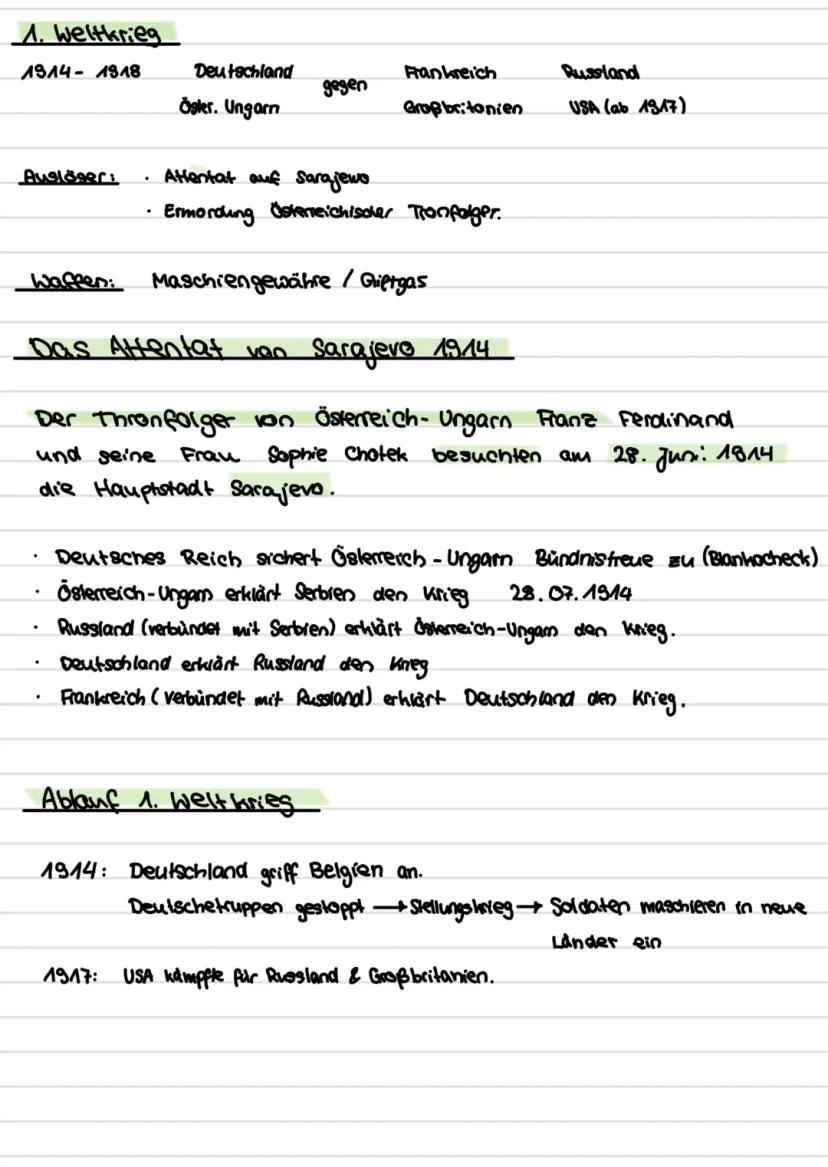 1. Weltkrieg
1914 - 1918 Deutschland gegen Frankreich Russland
Öster. Ungarn Großbritonien USA (ab 1917)
Auslöser: · Attentat auf Sarajewo
· Ermordung Östereichischer Tronfolger.
Waffen: Maschiengewähre / Giftgas
Das Attentat von Sarajevo 1914
Der Thronfolger von Österreich-Ungarn Franz Ferdinand
und seine Frau Sophie Chotek besuchten am 28. Juni 1914
die Hauptstadt Sarajevo.
· Deutsches Reich sichert Österreich-Ungarn Bündnistreue zu (Blankocheck)
· Österreich-Ungarn erklärt Serbien den Krieg 28.07.1914
· Russland (verbündet mit Serbien) erklärt Österreich-Ungarn den Krieg.
· Deutschland erklärt Russland den Krieg
· Frankreich (verbündet mit Russland) erklärt Deutschland den Krieg.
Ablauf 1. Weltkrieg
1914: Deutschland griff Belgien an.
Deutschetruppen gestoppt → Stellungskrieg → Soldaten maschieren in neue
Länder ein
1917: USA kämpfte für Russland & Großbritanien.